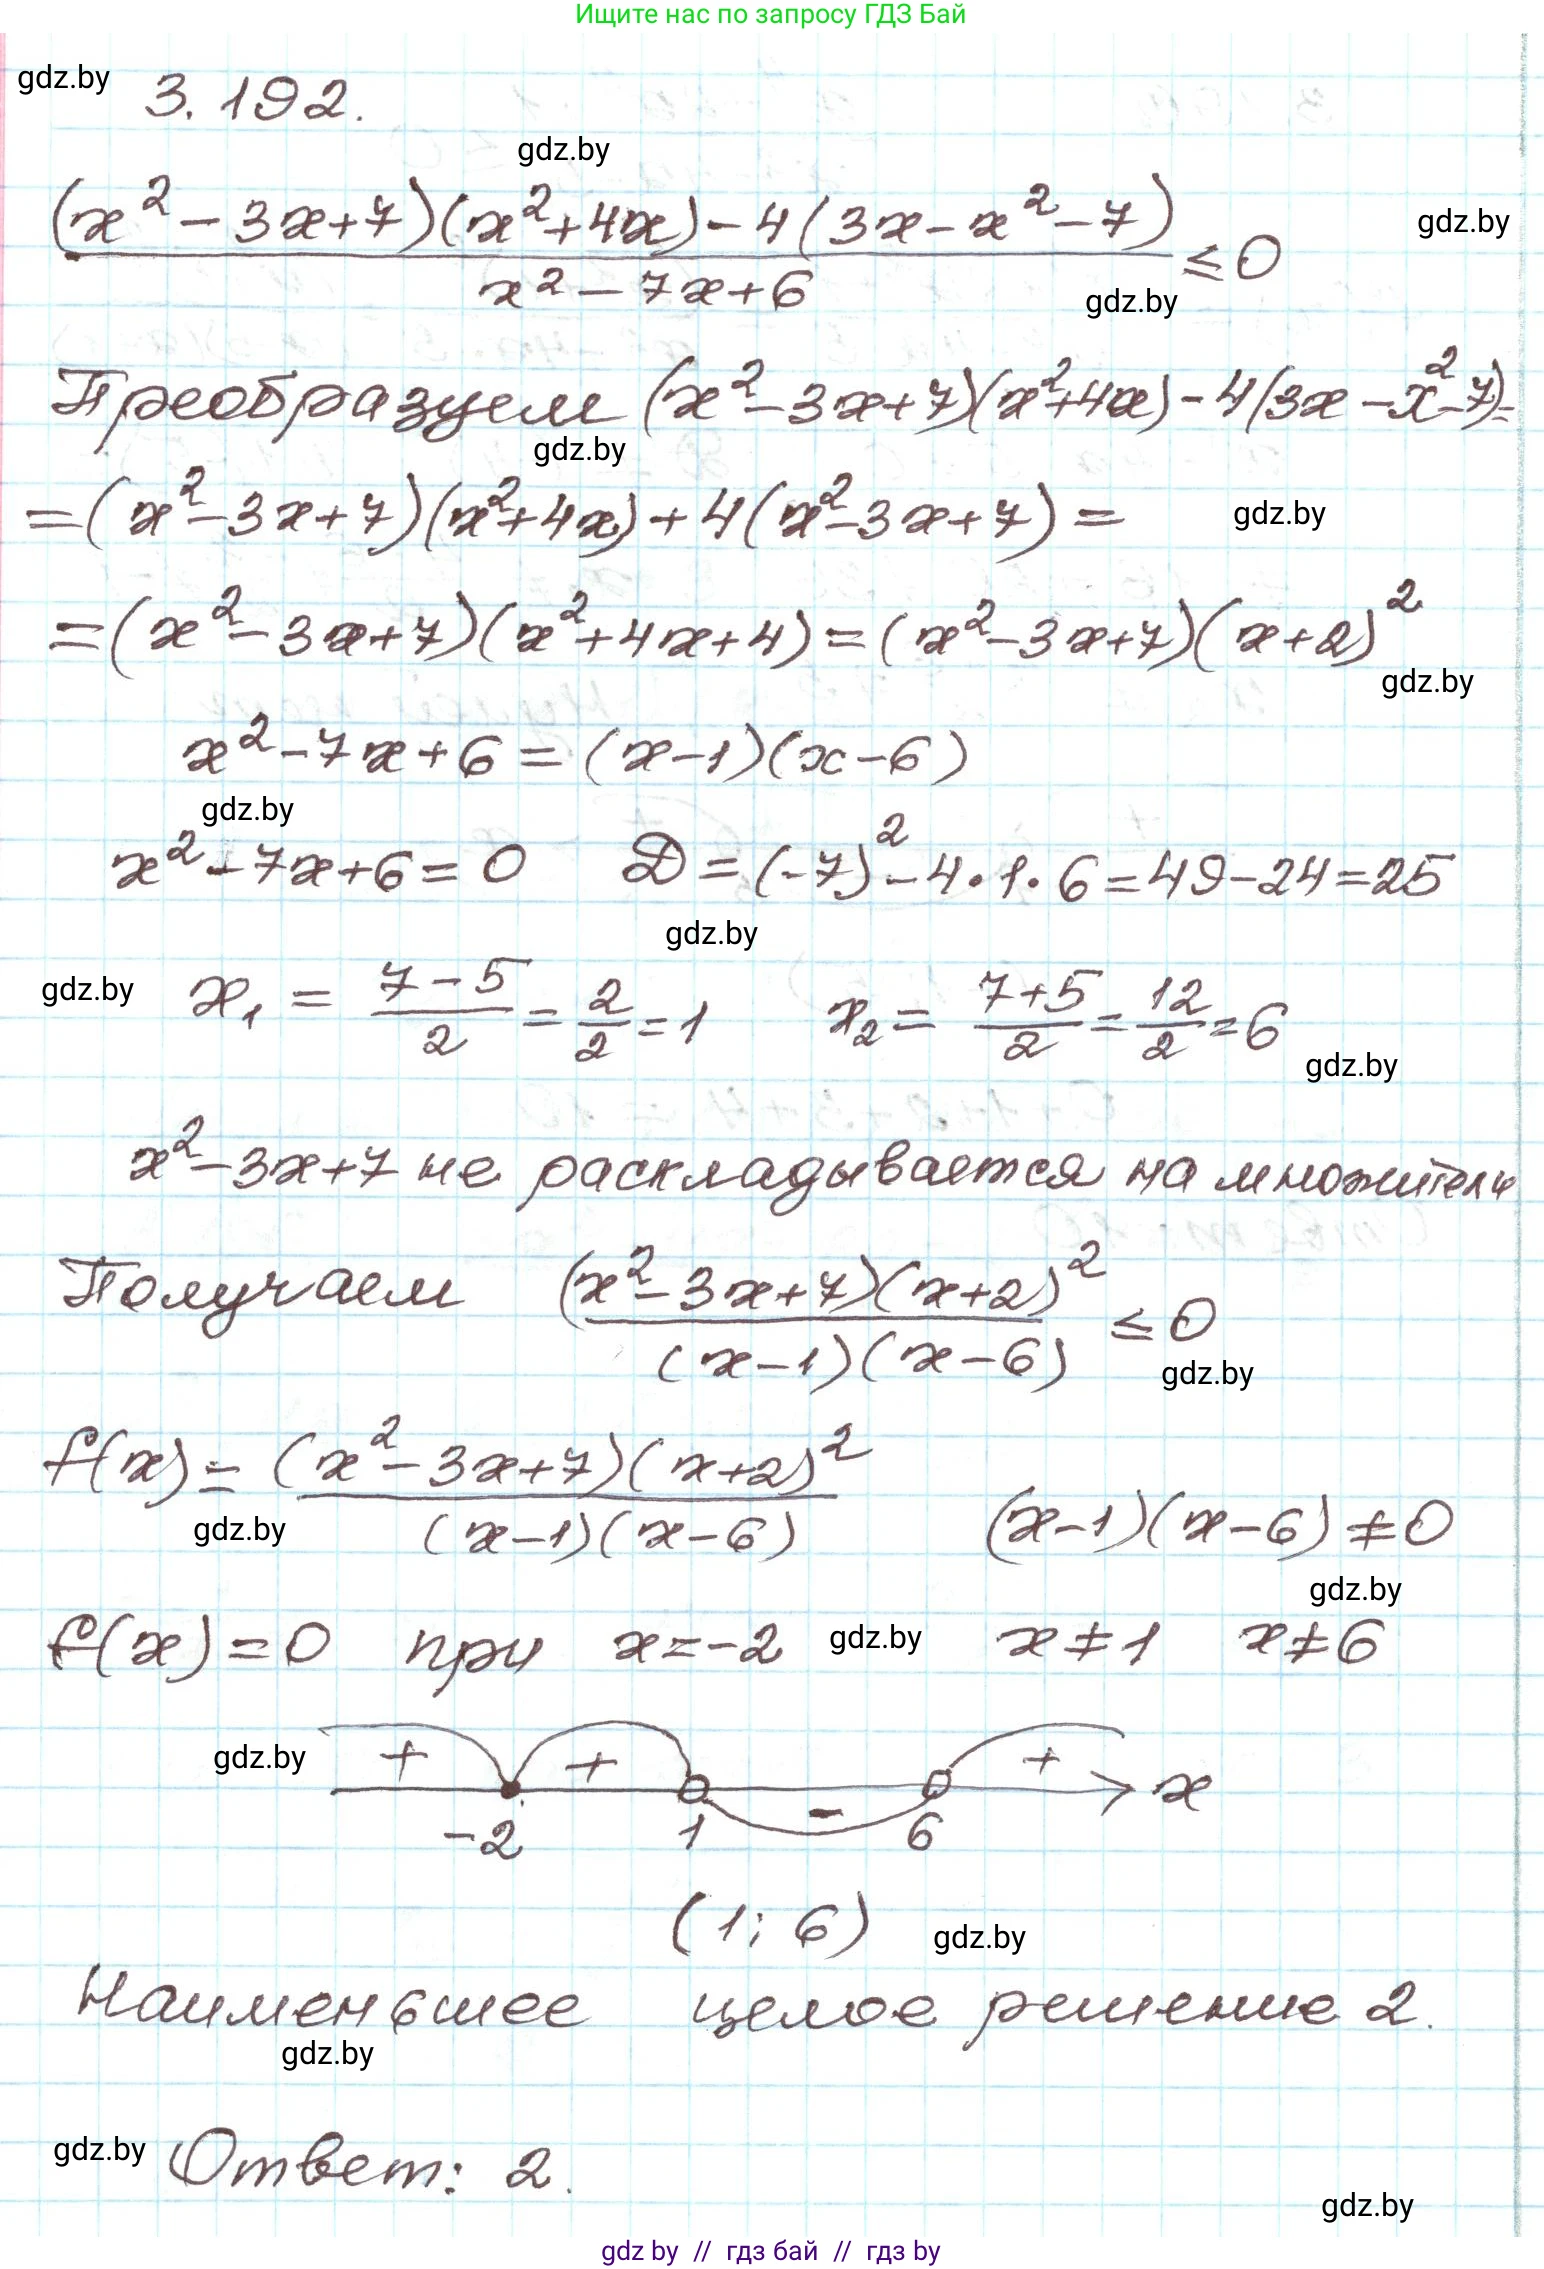 Ищите нас по запросу ГДЗ Бай
gdz.by
3.192.
gdz.by
(x² - 3x+7)(x²+4x) - 4(3x - x² - 7)
gdz.by
≤ 0
x² - 7x+6
gdz.by
Преобразуем (x² - 3x+7)(x²+4x) - 4(3x - x² - 7) =
gdz.by
= (x² - 3x+7)(x²+4x) + 4(x² - 3x+7) =
gdz.by
= (x² - 3x+7)(x²+4x+4) = (x² - 3x+7)(x+2)²
gdz.by
x² - 7x+6 = (x-1)(x-6)
gdz.by
x² - 7x+6 = 0 D = (-7)² - 4·1·6 = 49 - 24 = 25
gdz.by
gdz.by
x₁ = (7-5)/2 = 2/2 = 1 x₂ = (7+5)/2 = 12/2 = 6
gdz.by
x² - 3x+7 не раскладывается на множители
Получаем (x² - 3x+7)(x+2)² / (x-1)(x-6) ≤ 0
gdz.by
f(x) = (x² - 3x+7)(x+2)² / (x-1)(x-6) (x-1)(x-6) ≠ 0
gdz.by
gdz.by
f(x) = 0 при x = -2 gdz.by x ≠ 1 x ≠ 6
gdz.by + + - + x
-2 1 6
(1; 6) gdz.by
Наименьшее целое решение 2.
gdz.by
gdz.by Ответ: 2.
gdz.by
gdz by // гдз бай // гдз by